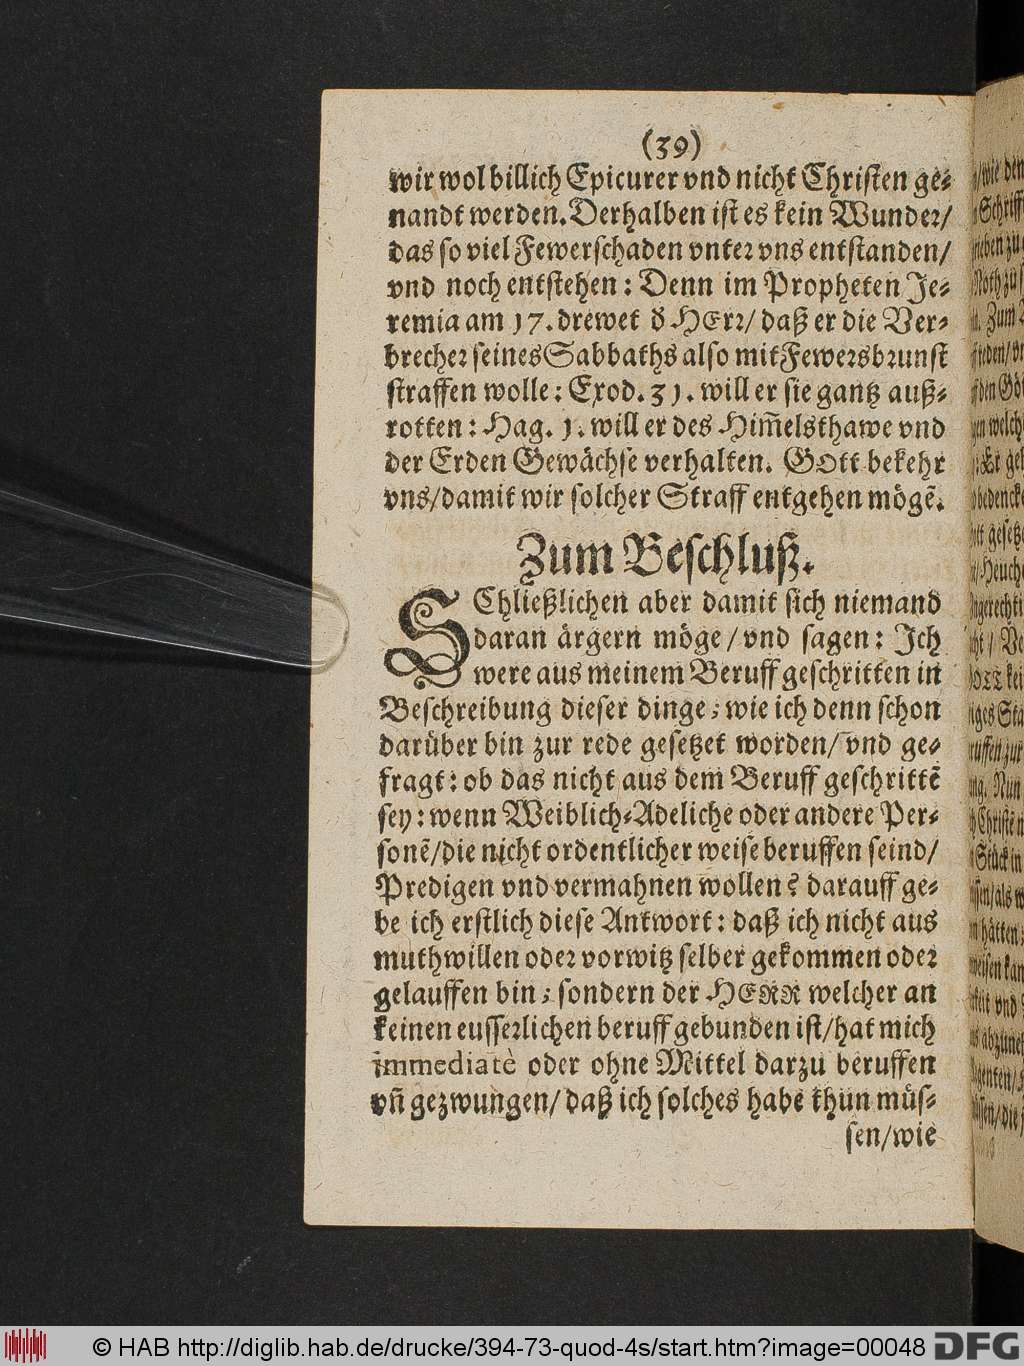 (39)
wir wol billich Epicurer vnd nicht Christen ge-
nandt werden. Derhalben ist es kein Wunder/
das so viel Fewerschaden vnter vns entstanden/
vnd noch entstehen: Denn im Propheten Je-
remia am 17. drewet d̕ HErr/ daß er die Ver-
brecher seines Sabbaths also mit Fewersbrunst
straffen wolle: Exod. 31. will er sie gantz auß-
rotten: Hag. 1. will er des Him̃elsthawe vnd
der Erden Gewächse verhalten. GOtt bekehr
vns/damit wir solcher Straff entgehen mögẽ.
Zum Beschluß.
SChließlichen aber damit sich niemand
daran ärgern möge/vnd sagen: Ich
were aus meinem Beruff geschritten in
Beschreibung dieser dinge; wie ich denn schon
darüber bin zur rede gesetzet worden/ vnd ge-
fragt: ob das nicht aus dem Beruff geschrittẽ
sey: wenn Weiblich-Adeliche oder andere Per-
sonẽ/die nicht ordentlicher weise beruffen seind/
Predigen vnd vermahnen wollen? darauff ge-
be ich erstlich diese Antwort: daß ich nicht aus
muthwillen oder vorwitz selber gekommen oder
gelauffen bin; sondern der HERR welcher an
keinen eusserlichen beruff gebunden ist/hat mich
immediatè oder ohne Mittel darzu beruffen
vñ gezwungen/ daß ich solches habe thun müs-
sen/wie
© HAB http://diglib.hab.de/drucke/394-73-quod-4s/start.htm?image=00048
DFG